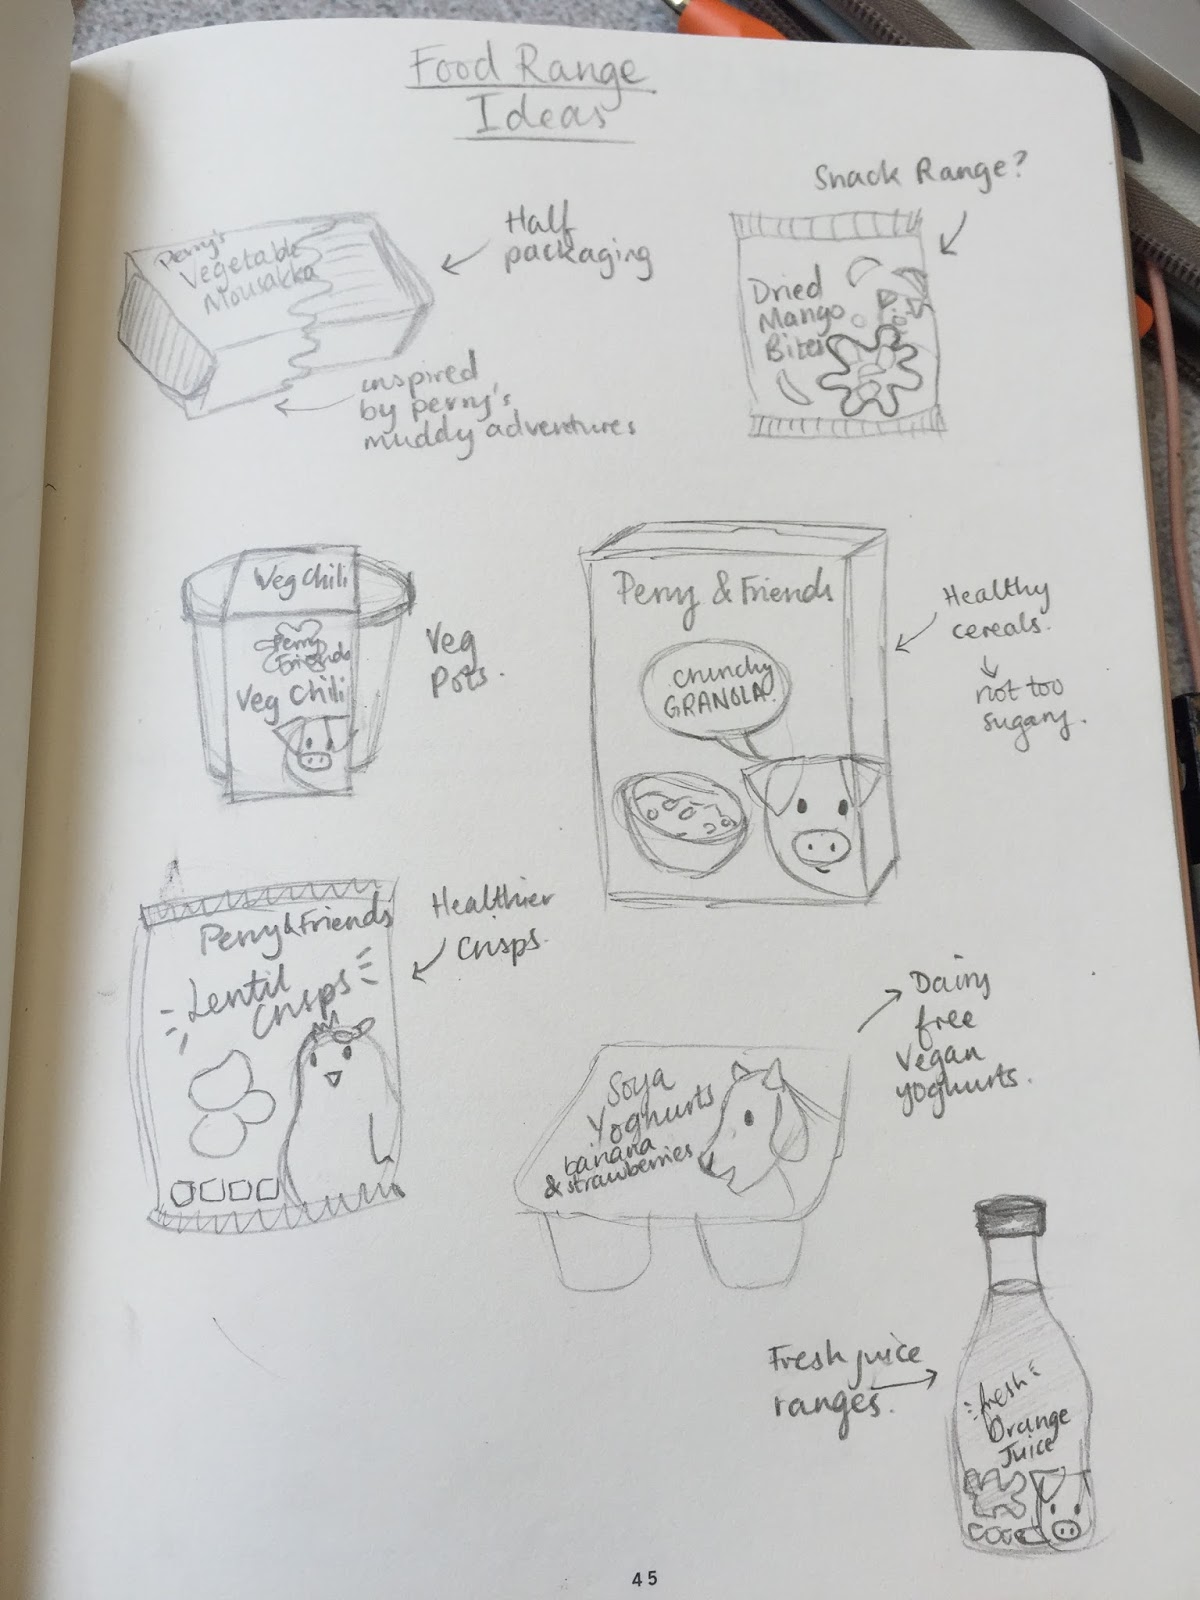 Food Range
Ideas
Snack Range?
Half
packaging
Perry's
Vegetable
Mousakka
inspired
by perry's
muddy adventures
Dried
Mango
Bites
Veg Chili
Perry
Friends
Veg Chili
Veg
Pots.
Perry & Friends
crunchy
GRANOLA!
Healthy
cereals.
not too
sugary.
Perry & Friends
Lentil
Crisps
Healthier
crisps.
Soya
Yoghurts
banana
& strawberries
Dairy
free
vegan
yoghurts.
Fresh juice
ranges.
fresh
Orange
Juice
45